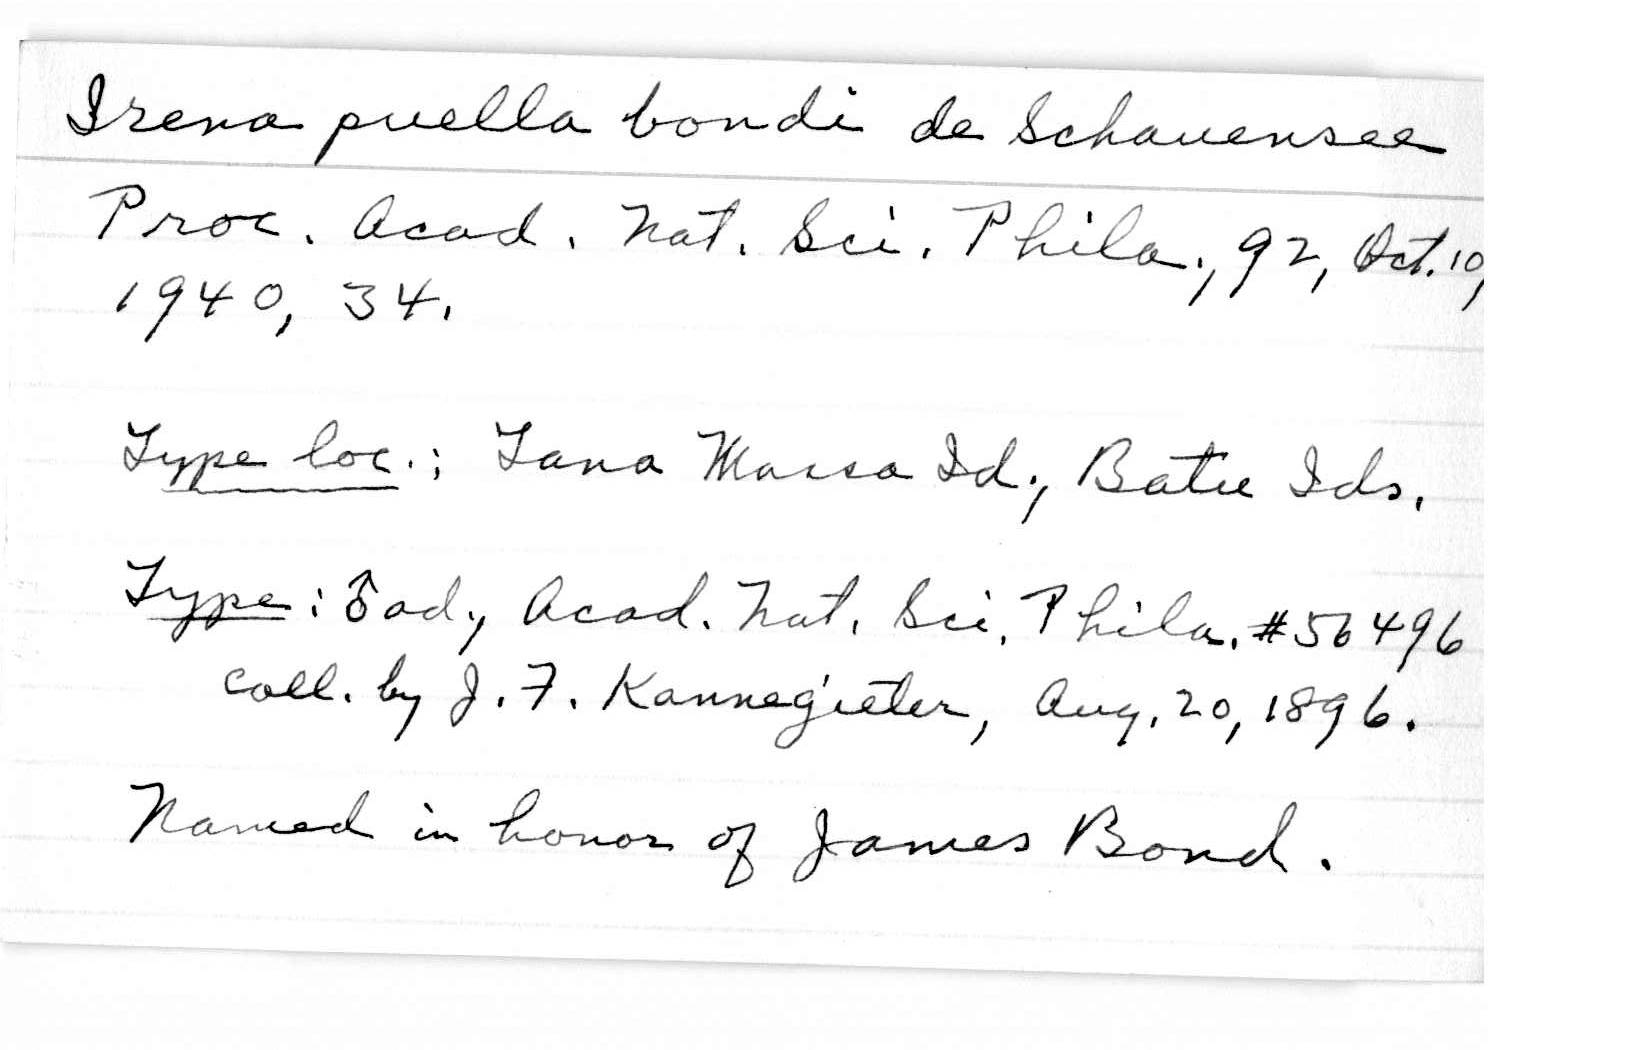 Irena puella bondi de Schauensee
Proc. Acad. Nat. Sci. Phila., 92, Oct. 10,
1940, 34.
Type loc.; Tana Massa Id., Batu Ids.
Type: ♂ ad., Acad. Nat. Sci. Phila. #56496
coll. by J. F. Kannegieter, Aug. 20, 1896.
Named in honor of James Bond.